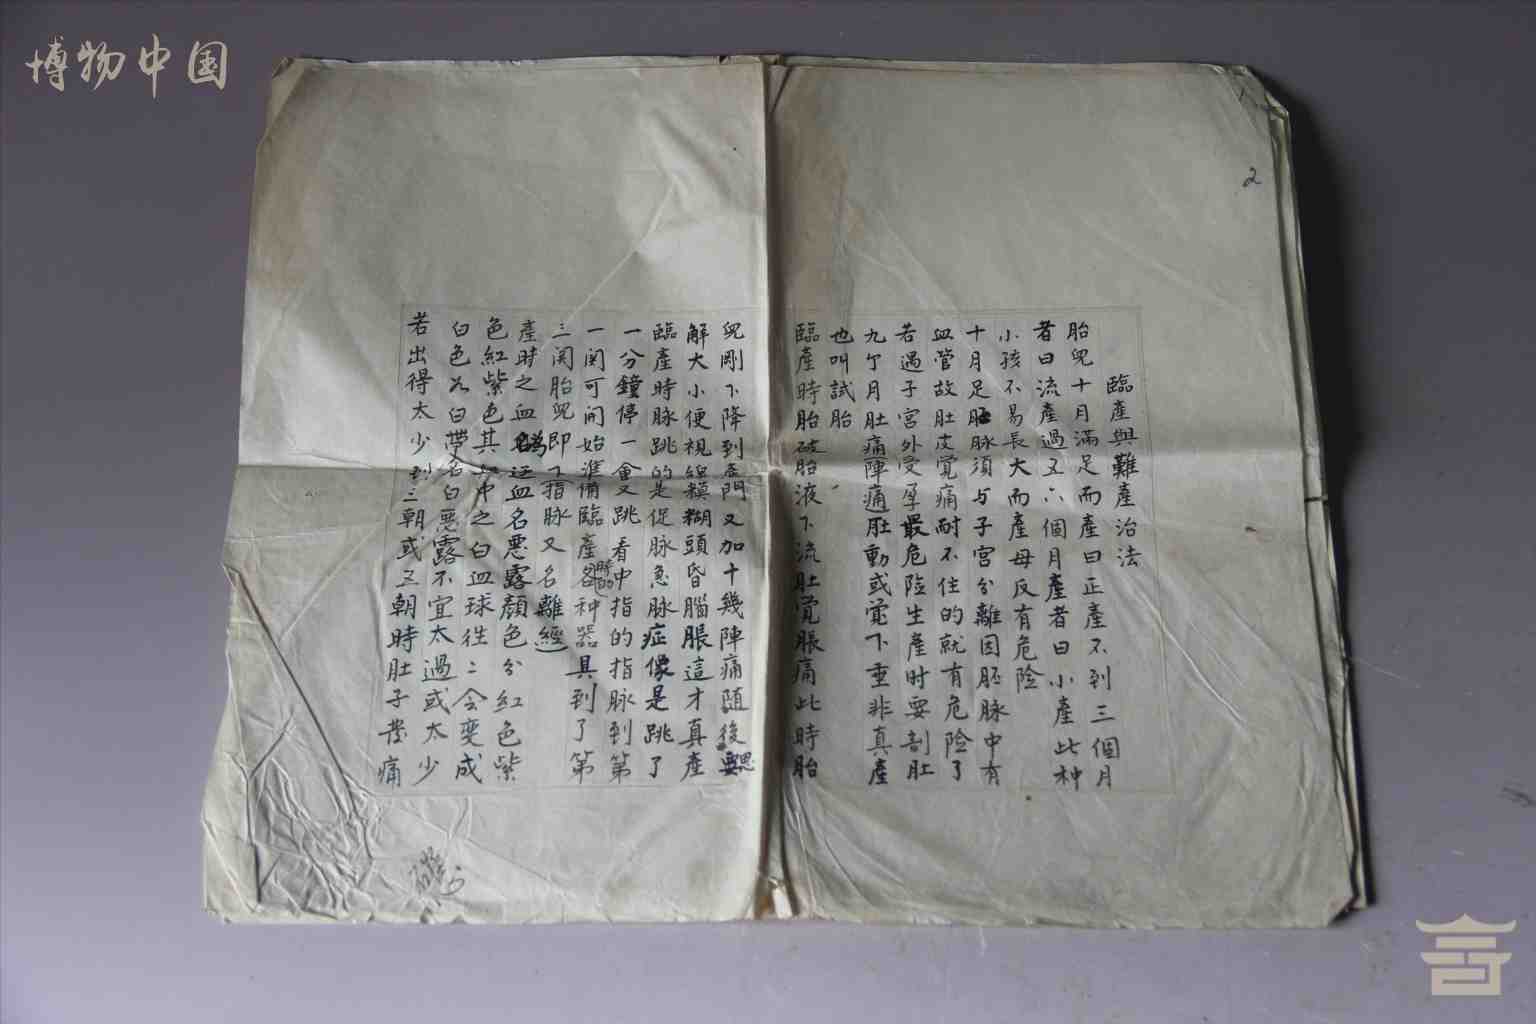 博物中国
2
臨產與難產治法
胎兒十月滿足而產曰正產不到三個月
者曰流產過五六個月產者曰小產此种
小孩不易長大而產母反有危险
十月足胚脉須与子宮分離因胚脉中有
血管故肚皮覚痛耐不住的就有危险了
若過子宮外受孕最危险生產时要剖肚
九个月肚痛陣痛肚動或覚下重非真產
也叫試胎
臨產時胎破胎液下流肚覚脹痛此時胎
兒剛下降到產門又加十幾陣痛随後要
解大小便視線糢糊頭昏腦脹這才真產
臨產時脉跳的是促脉急脉症像是跳了
一分鐘停一會又跳看中指的指脉到第
一関可開始準備臨產時的各种器具到了第
三関胎兒即下指脉又名離經
產時之血名為返血名恶露顏色分紅色紫
色紅紫色其中之白血球往二会变成
白色为白帶名白恶露不宜太過或太少
若出得太少到三朝或五朝時肚子發痛